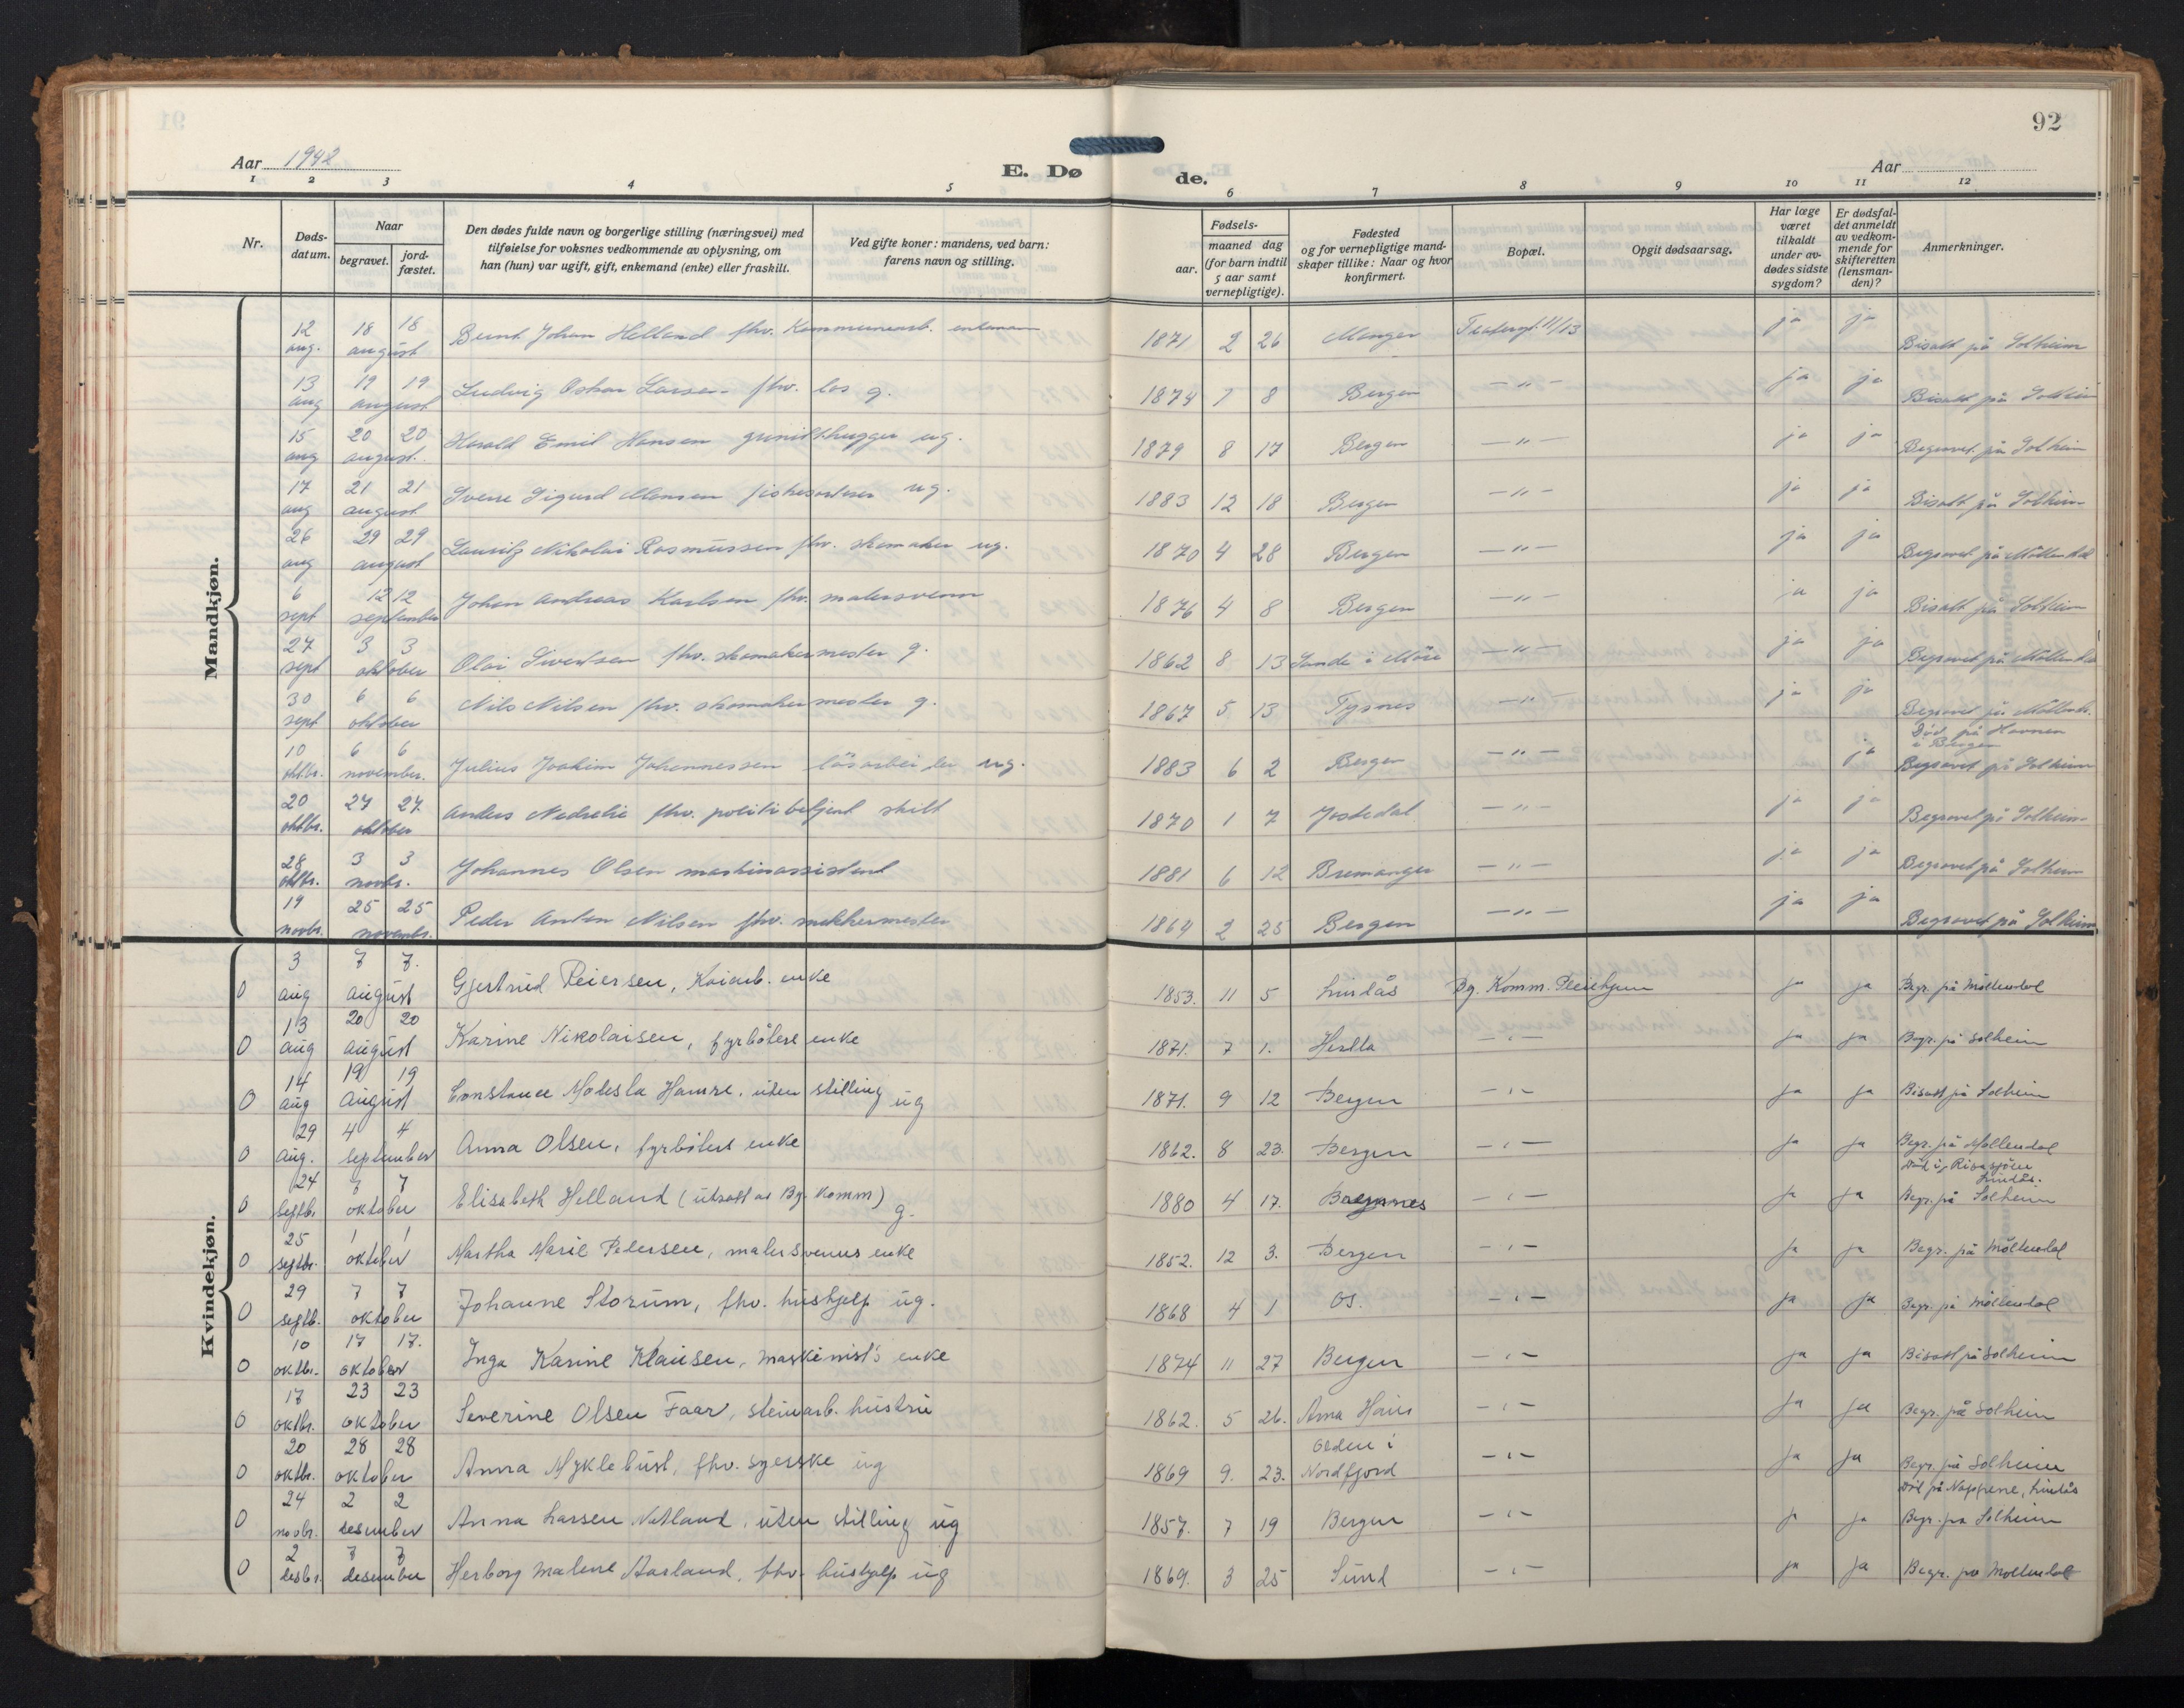 92
Aar 1942
E. Dø
de.
Aar
1 2 3 4 5 6 7 8 9 10 11 12
Nr.
Døds-
datum.
Naar
begravet.
jord-
fæstet.
Den dødes fulde navn og borgerlige stilling (næringsvei) med
tilføielse for voksnes vedkommende av oplysning, om
han (hun) var ugift, gift, enkemand (enke) eller fraskilt.
Ved gifte koner: mandens, ved barn:
farens navn og stilling.
Fødsels-
aar.
maaned dag
(for barn indtil
5 aar samt
vernepligtige).
Fødested
og for vernepligtige mand-
skaper tillike: Naar og hvor
konfirmert.
Bopæl.
Opgit dødsaarsag.
Har læge
været
tilkaldt
under av-
dødes sidste
sygdom?
Er dødsfal-
det anmeldt
av vedkom-
mende for
skifteretten
(lensman-
den)?
Anmerkninger.
Mandkjøn.
12 aug. 18 18 august Bernt Johan Helland fhv. Kommunearb. 1871 2 26 Manger 11/13 ja ja Bisatt på Solheim
13 aug 19 19 august Ludvig Oskar Larsen fhv. los g. 1874 7 8 Bergen — " — ja ja Bisatt på Solheim
15 aug 20 20 august. Harald Emil Hansen ug. 1879 8 17 Bergen — " — ja ja Begravet på Solheim
17 aug 21 21 august Sverre Sigurd Monsen ug. 1883 12 18 Bergen — " — ja ja Bisatt på Solheim
26 aug 29 29 august Lauritz Nikolai Rasmussen fhv. skomaker ug. 1870 4 28 Bergen — " — ja ja Begravet på Möllendal
6 sept 12 12 september Johan Andreas Karlsen fhv. malersvenn 1876 4 8 Bergen — " — ja ja Bisatt på Solheim
27 sept 3 3 oktober Olai Sivertsen fhv. skomakermester g. 1862 8 13 Sande i Möre — " — ja ja Begravet på Möllendal
30 sept 6 6 oktober Nils Nilsen fhv. skomakermester g. 1867 5 13 Tysnes — " — ja ja Begravet på Möllendl.
10 oktbr. 6 6 november. Julius Joakim Johannessen lösarbeider ug. 1883 6 2 Bergen — " — ja Död på Havnen i Bergen Begravet på Solheim
20 oktbr. 27 27. oktober Anders Nedrelie fhv. politibetjent skilt 1870 1 7 Jostedal — " — ja ja Begravet på Solheim
28 oktbr. 3 3 novbr. Johannes Olsen maskinassistent 1881 6 12 Bremanger — " — ja ja Begravet på Solheim
19 novbr. 25 25 novembr. Peder Anton Nilsen fhv. snekkermester 1864 2 25 Bergen — " — ja ja Begravet på Solheim
Kvindekjøn.
0 3 aug 7 7. august Gjertrud Peiersen, Kaiarb. enke 1853. 11 5 Lindås Bg. Komm. Pleiehjem ja ja Begr. på Möllendal
0 13 aug 20 20 august Karine Nikolaisen, fyrböters enke 1871. 7 1. Herdla — " — ja ja Begr. på Solheim
0 14 aug 19 19 august Constance Modesta Hamre, uten stilling ug 1871. 9 12 Bergen — " — ja ja Bisatt på Solheim
0 29 aug. 4 4 september Anna Olsen, fyrböters enke 1862. 8 23. Bergen — " — ja ja Begr. på Möllendal
0 24 septbr. 7 7 oktober Elisabeth Helland (utsatt av Bg. Komm) g. 1880 4 17. — " — ja ja Död i Risasjöen Lindås. Begr. på Solheim
0 25 septbr. 1 1 oktober Martha Marie Petersen, malersvenns enke 1852. 12 3. Bergen — " — ja ja Begr. på Möllendal
0 29 septb. 7 7 oktober Johanne Storum, fhv. hushjelp ug. 1868 4 1 Os. — " — ja ja Begr. på Möllendal
0 10 oktbr. 17 17. oktober Inga Karine Klausen, maskinist's enke 1874 11 27 Bergen — " — ja ja Bisatt på Solheim
0 17 oktbr. 23 23 oktober Severine Olsen Faar, steinarb. hustru 1862. 5 26. Arna Haus — " — ja ja Begr. på Solheim
0 20 oktbr. 28 28 oktober Anna Myklebust, fhv. syerske ug 1869 9. 23. Olden i Nordfjord — " — ja ja Begr. på Solheim
0 24 novbr. 2 2 desember Anna Larsen Natland, uten stilling ug 1857. 7 19 Bergen — " — ja ja Död på Nappene, Lindås Begr. på Solheim
0 2 desbr. 7 7 desember Herborg Malene Aarland, fhv. hushjelp ug 1869. 3 25 Sund — " — ja ja Begr. på Möllendal